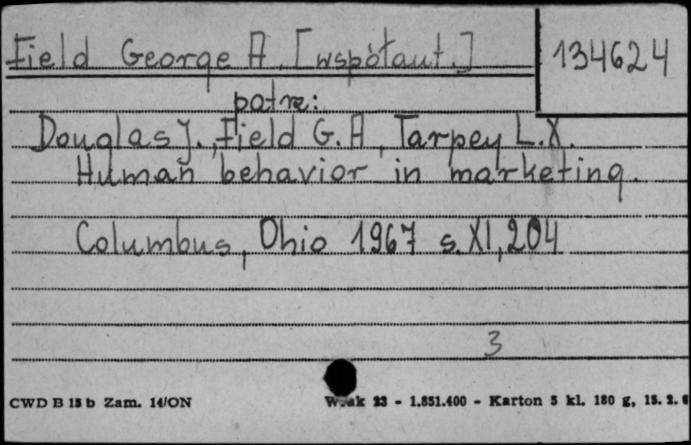 Field George A. [współaut.]
134624
patrz:
Douglas J., Field G.A, Tarpey L.X.
Human behavior in marketing.
Columbus, Ohio 1967 s. XI, 204
3
CWD B 15 b Zam. 14/ON 23 - 1.851.400 - Karton 5 kl. 180 g, 15. 2. 6